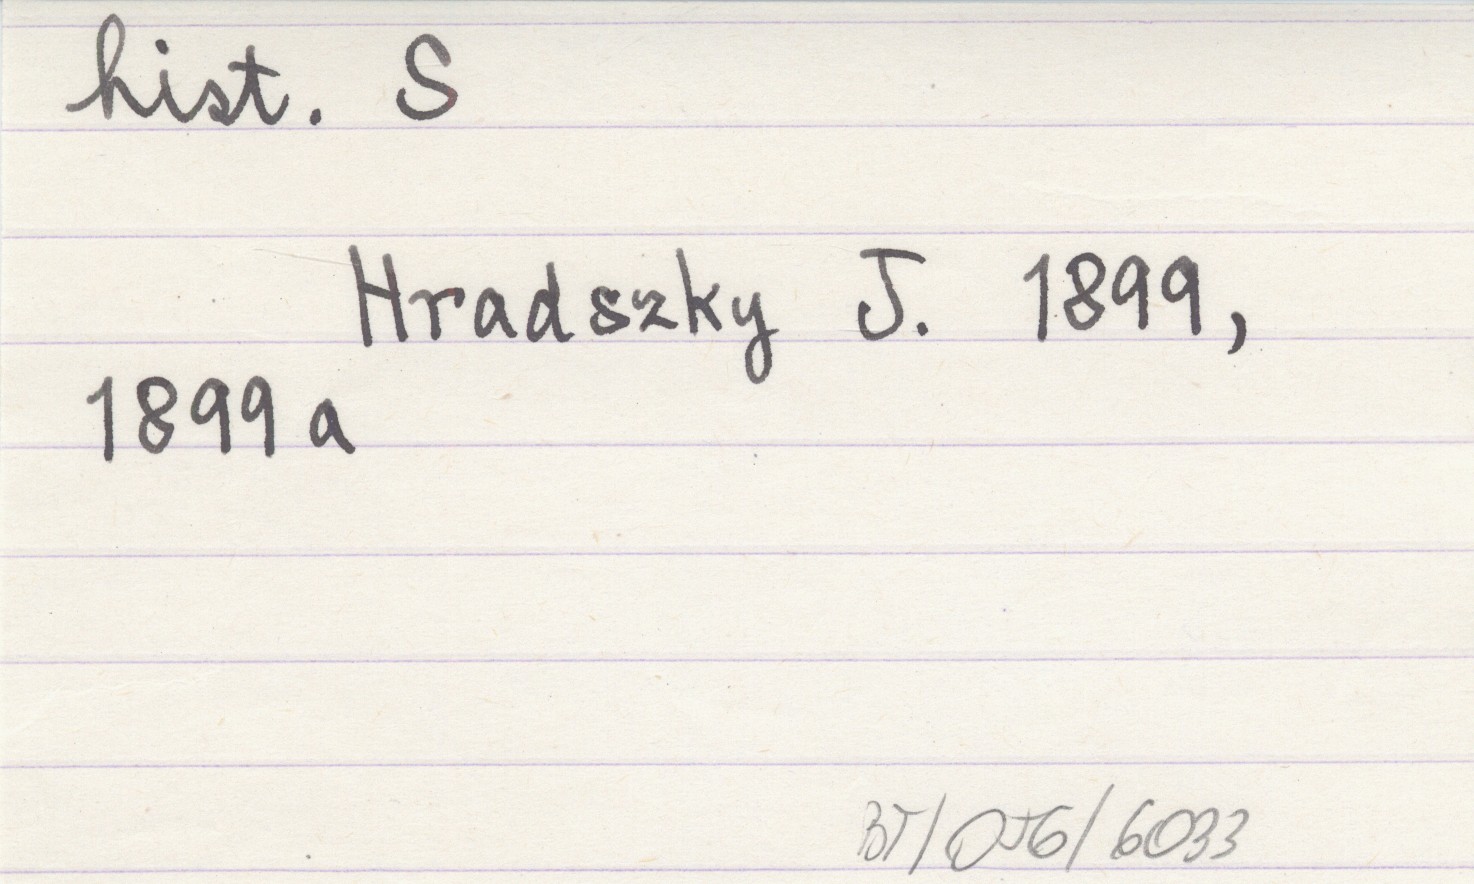 hist. S
Hradszky J. 1899,
1899 a
BT/OJG/6033